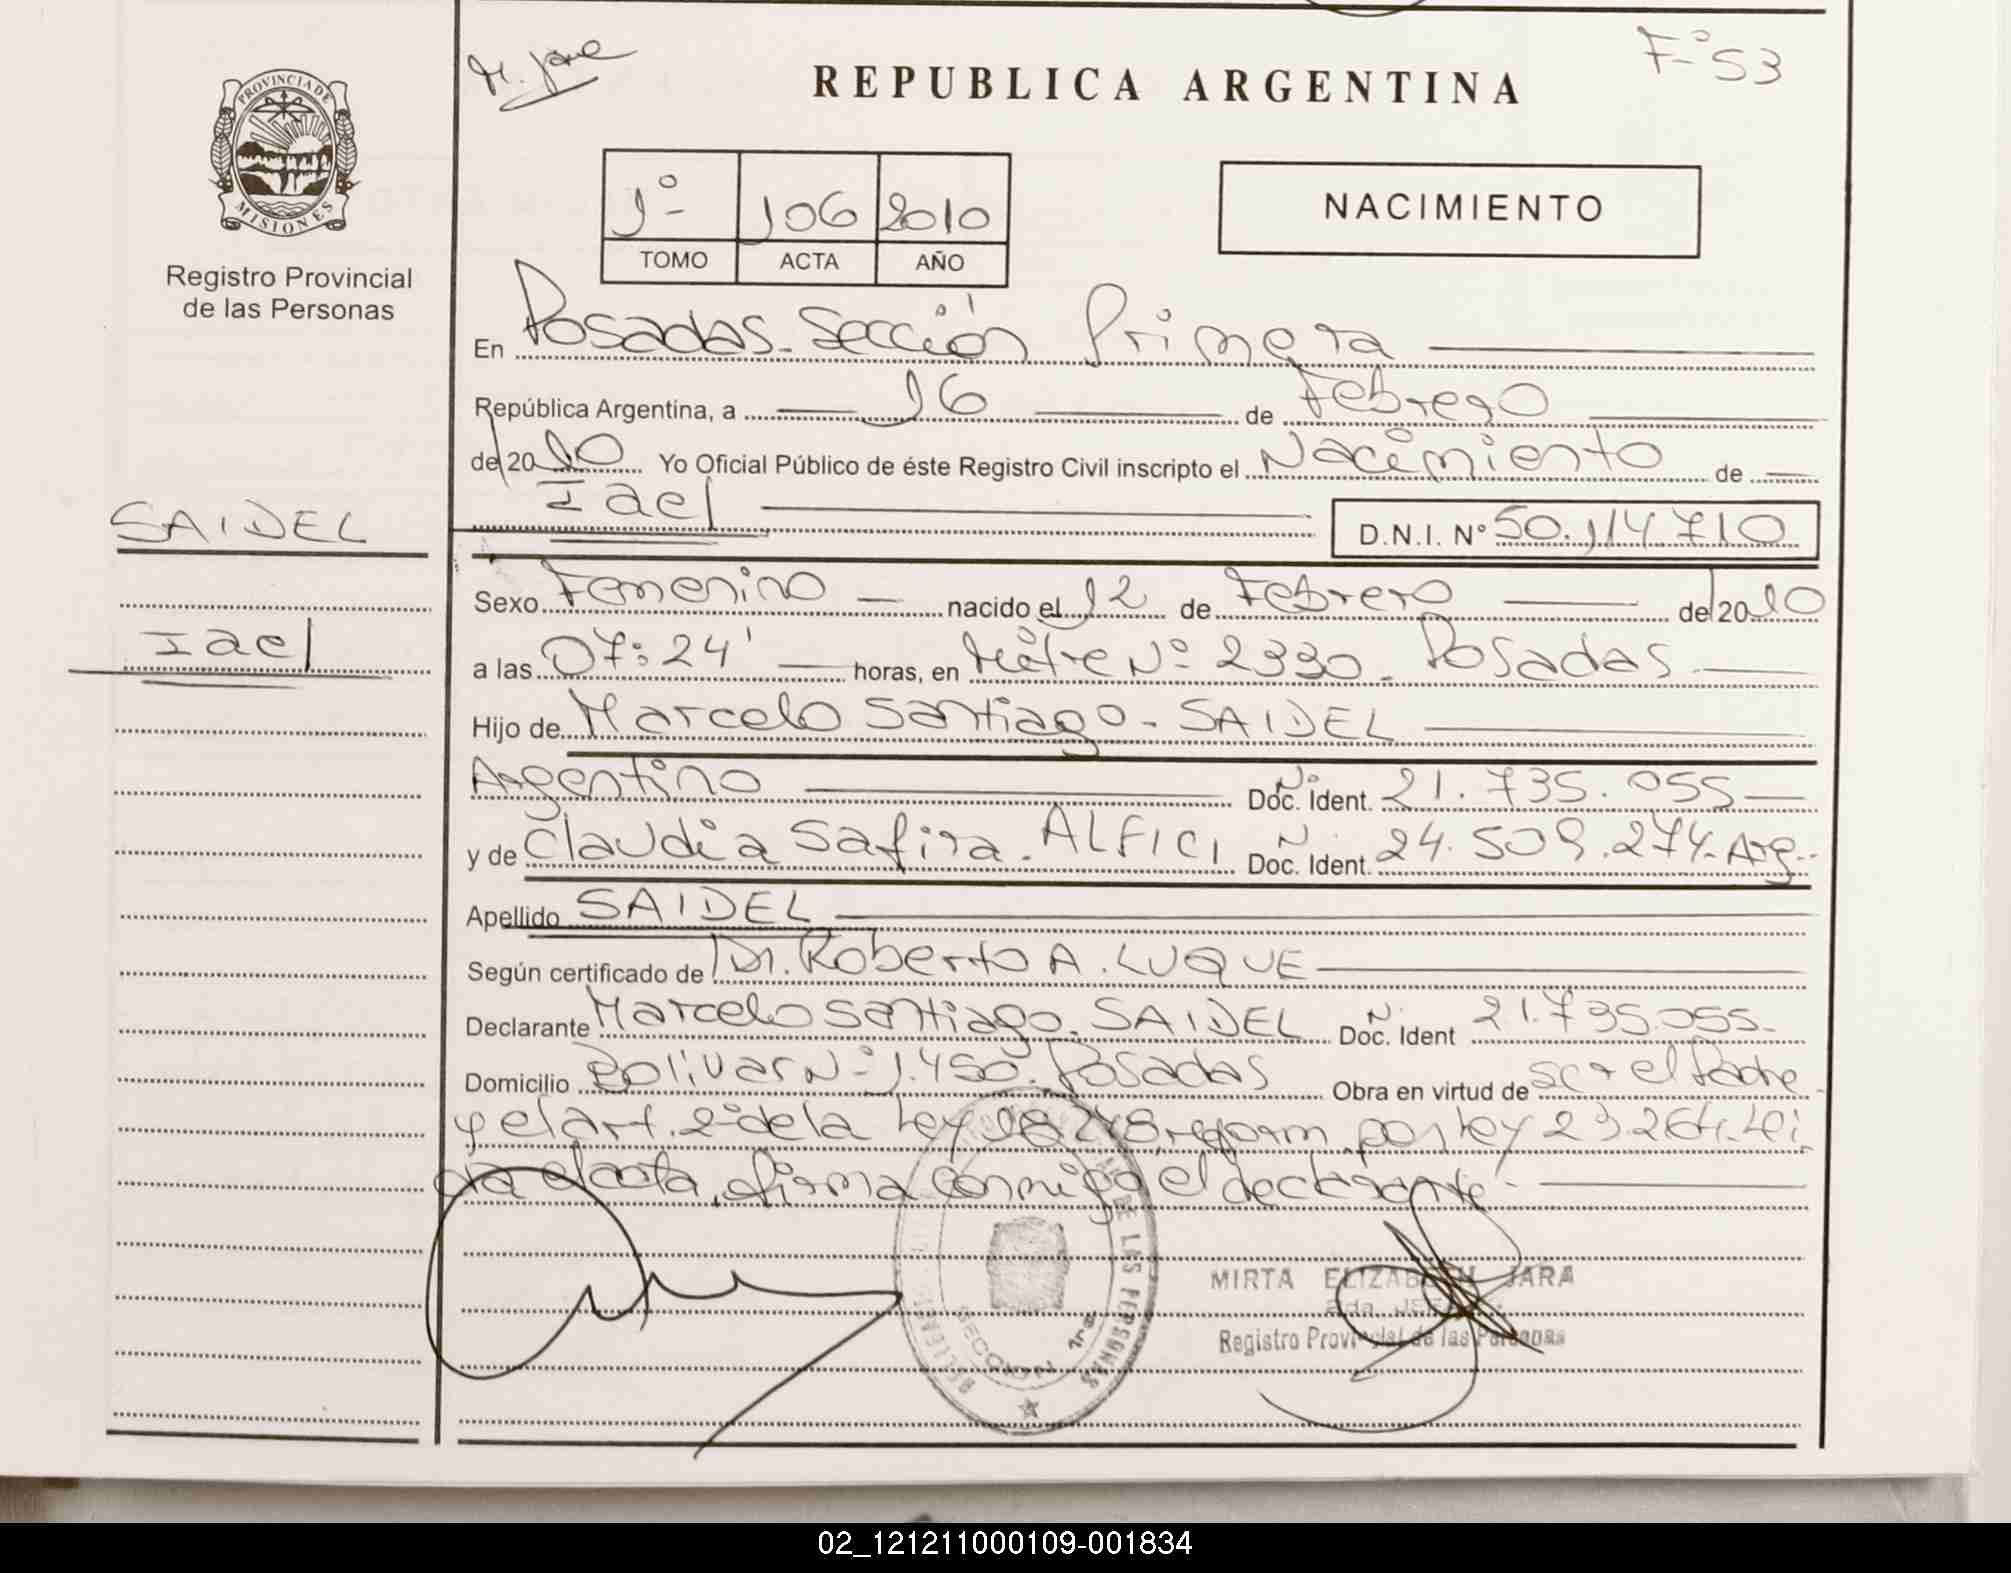 M. Jara
F° 53
REPUBLICA ARGENTINA
PROVINCIA DE
MISIONES
Registro Provincial
de las Personas
1° 106 2010
TOMO ACTA AÑO
NACIMIENTO
En Posadas. Sección Primera
República Argentina, a 16 de Febrero
de 2010 Yo Oficial Público de éste Registro Civil inscripto el Nacimiento de
Iael
D.N.I. N° 50.114710
SAIDEL
Iael
Sexo Femenino nacido el 12 de Febrero de 2010
a las 07:24' horas, en Mitre N° 2330. Posadas
Hijo de Marcelo Santiago. SAIDEL
Argentino Doc. Ident. N° 21.735.055
y de Claudia Safira. ALFICI Doc. Ident. N° 24.509.274. Arg.
Apellido SAIDEL
Según certificado de Dr. Roberto A. LUQUE
Declarante Marcelo Santiago. SAIDEL Doc. Ident N° 21.735.055.
Domicilio Bolívar N° 1.450. Posadas Obra en virtud de ser el Padre
y el art. 2° de la Ley 18248, reform. por ley 23264. Leí
da el acta, firma conmigo el declarante.
DE LAS PERSONAS
SECCION 1ra
MIRTA ELIZABETH JARA
2da JEFA
Registro Provincial de las Personas
02_121211000109-001834